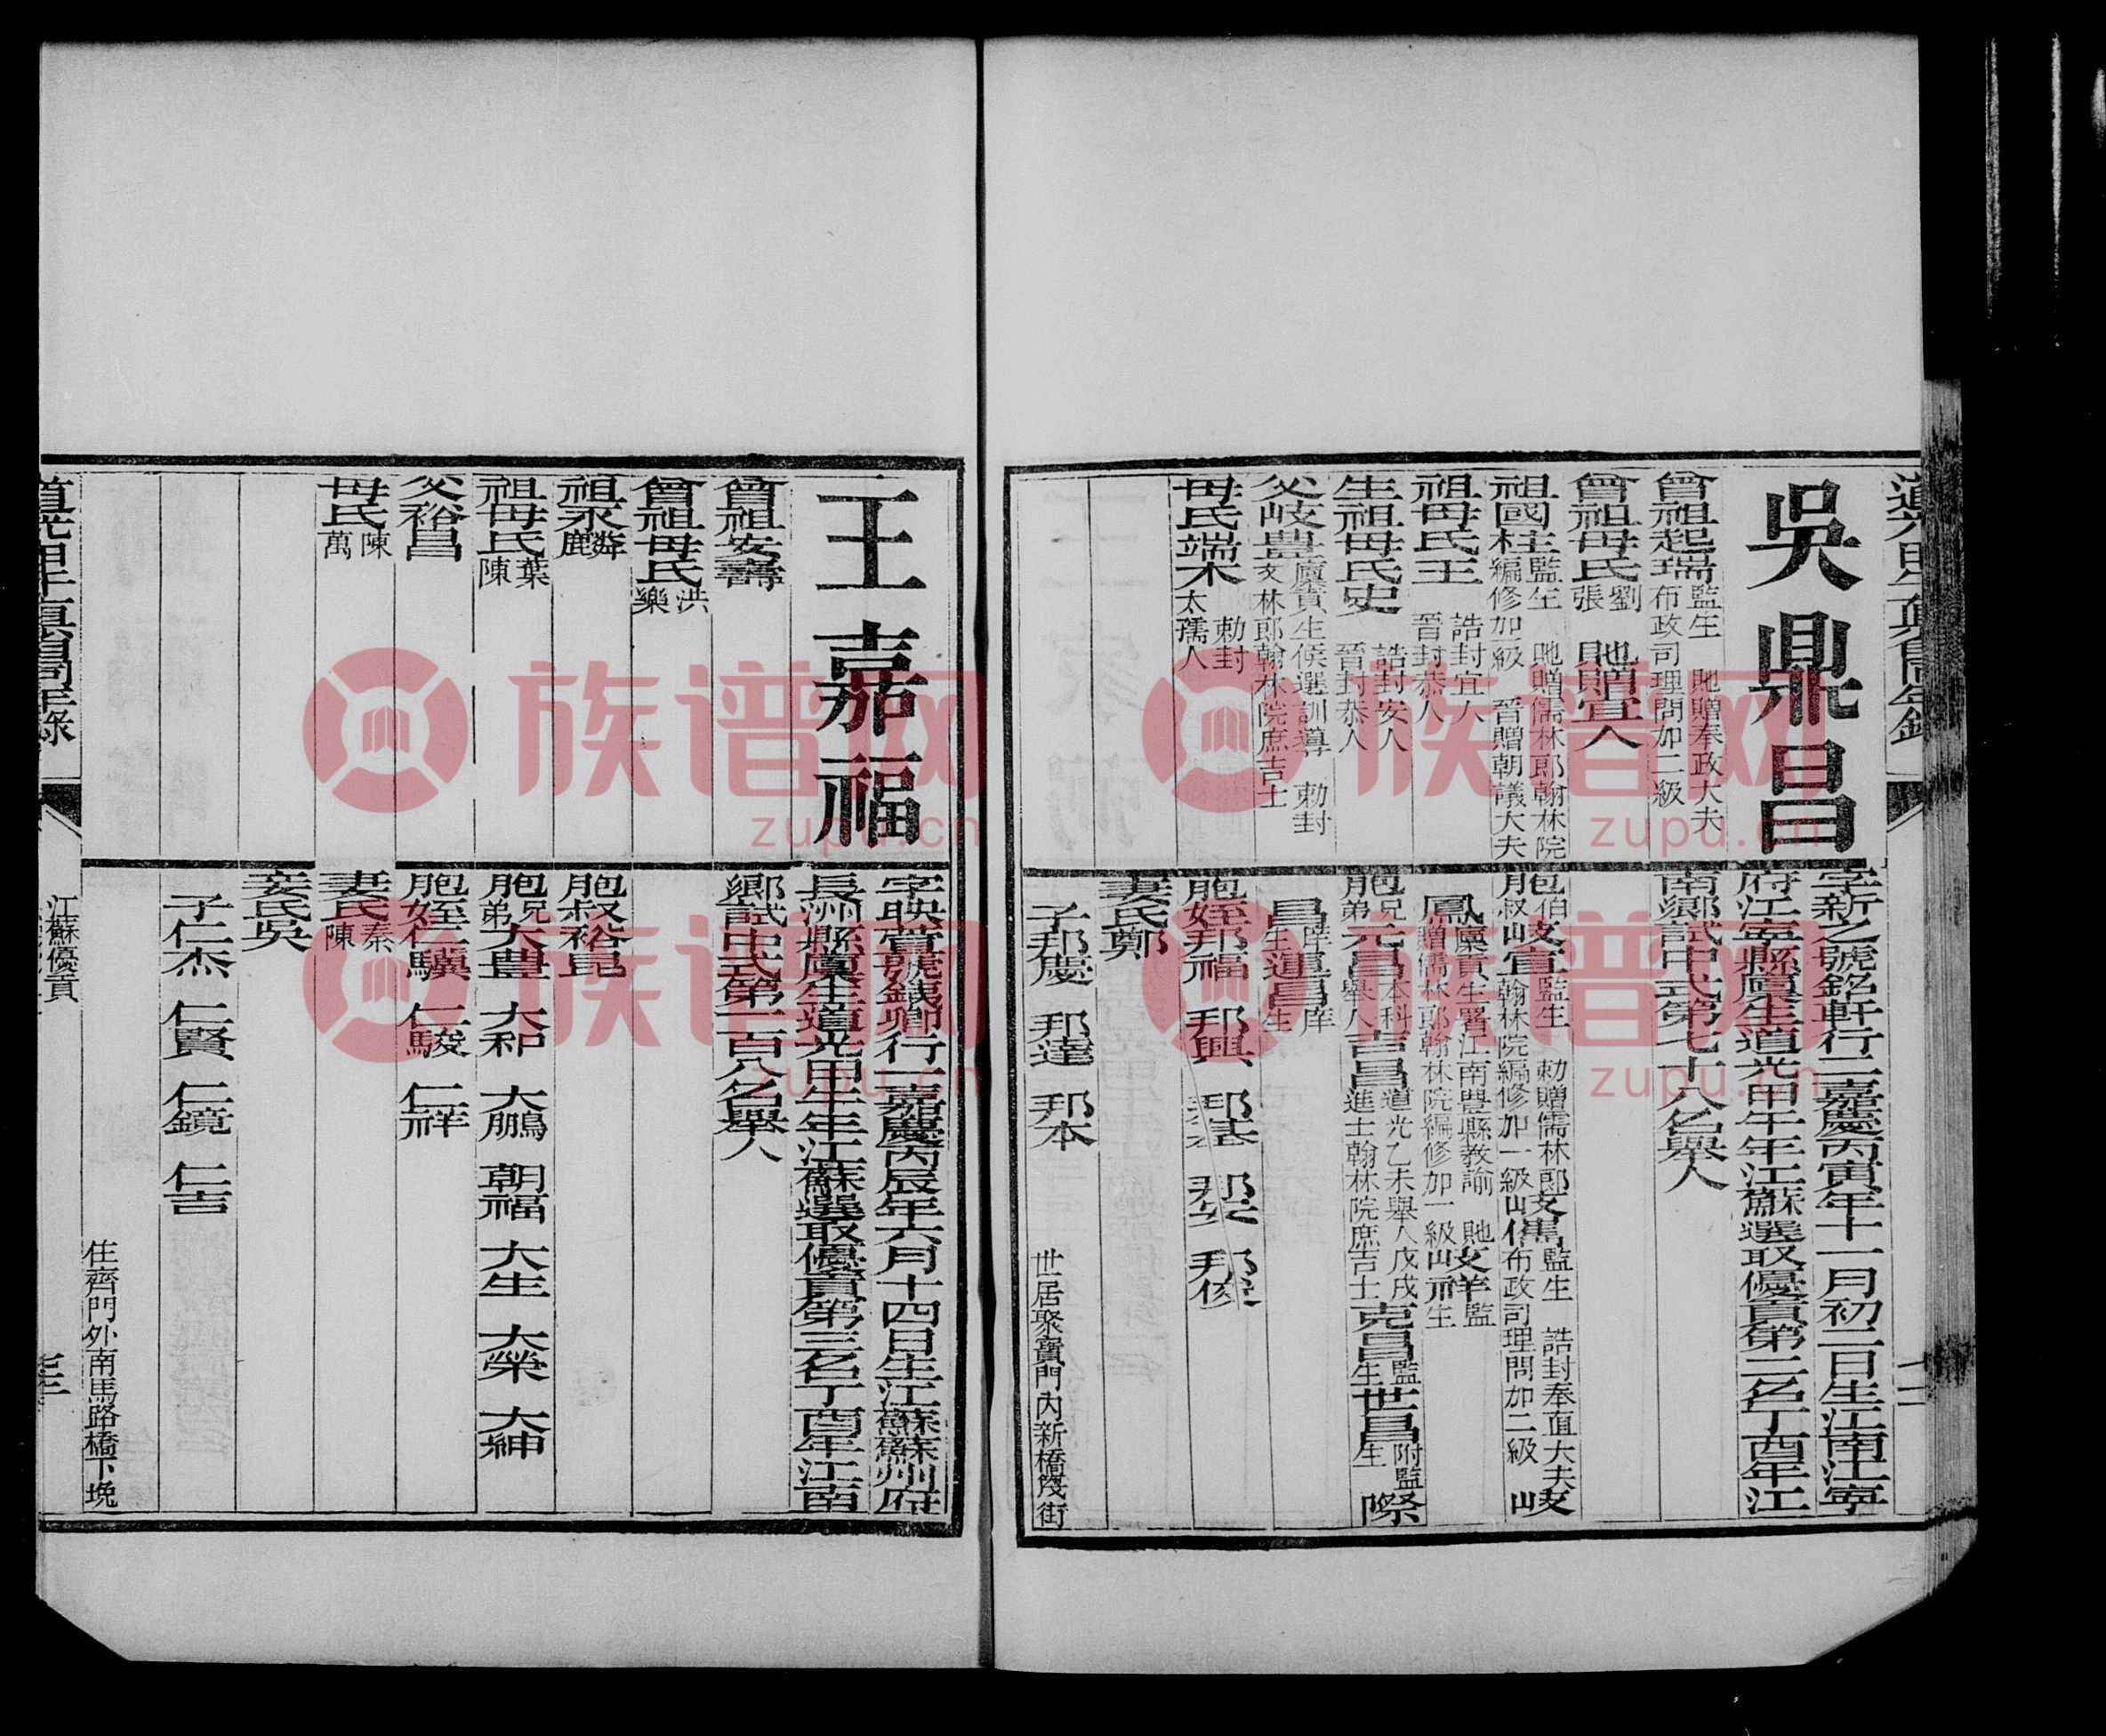 吳鼎昌
字新之號銘軒行二嘉慶丙寅年十一月初二日生江南江寧
府江寧縣廩生道光甲午年江蘇選取優貢第二名丁酉年江
南鄉試中式第七十八名舉人
曾祖起瑞監生 貤贈奉政大夫布政司理問加二級
曾祖母氏劉張 貤贈宜人
祖國柱監生 貤贈儒林郎翰林院編修加一級 晉贈朝議大夫
祖母氏王 誥封宜人 晉封恭人
生祖母氏史 誥封安人 晉封恭人
父岐豊廩貢生候選訓導 勅封文林郎翰林院庶吉士
母氏端木 勅封太孺人
元昌本科舉人吉昌道光乙未舉人戊戌進士翰林院庶吉士克昌監生世昌附監生 際
昌庠生運昌庠生
胞姪邦福 邦興 邦基 邦安 邦俊
妻氏鄭
子邦慶 邦達 邦本
世居聚寶門內新橋殘街
王嘉福
字映萱號鐵卿行一嘉慶丙辰年六月十四日生江蘇蘇州府
長洲縣廩生道光甲午年江蘇選取優貢第三名丁酉年江南
鄉試中式第一百八名舉人
曾祖安壽
曾祖母氏洪樂
祖永麟鹿
祖母氏葉陳
父裕昌
母氏陳萬
胞叔裕昆
胞兄弟大豊 大和 大鵬 朝福 大生 大榮 大紳
胞姪仁驥 仁駿 仁祥
妻氏秦陳
妾氏吳
子仁杰 仁賢 仁鏡 仁吉
住齊門外南馬路橋下塊
道光甲午直省同年錄
江蘇優貢
族谱网
zupu.cn